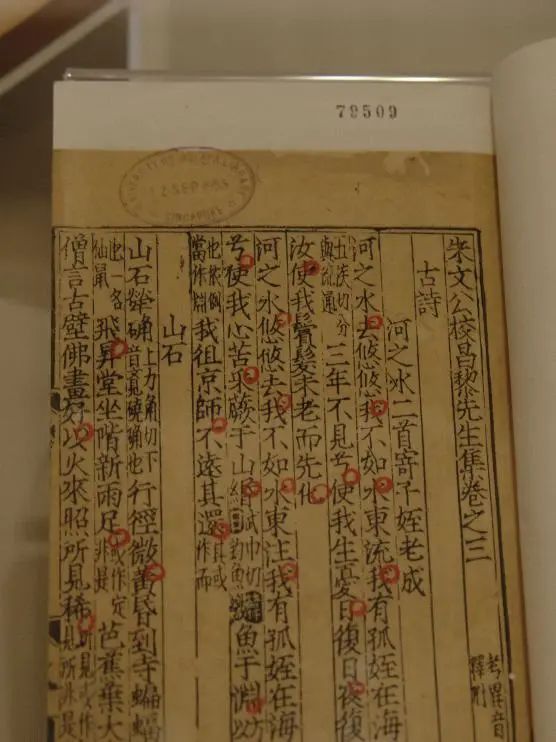 79509
SEP
SINGAPORE
朱文公校昌黎先生集卷之三 考異音釋附
古詩
河之水二首寄子姪老成
河之水去悠悠我不如水東流我有孤姪在海
三年不見兮使我生憂日復日夜復
汝使我鬢髮未老而先化
河之水悠悠去我不如水東注我有孤姪在海
兮使我心苦采蕨于山緡 魚于淵
我徂京師不遠其還
山石
山石犖确 行徑微黃昏到寺蝙蝠
飛昇堂坐階新雨足 芭蕉葉大
僧言古壁佛畫好以火來照所見稀